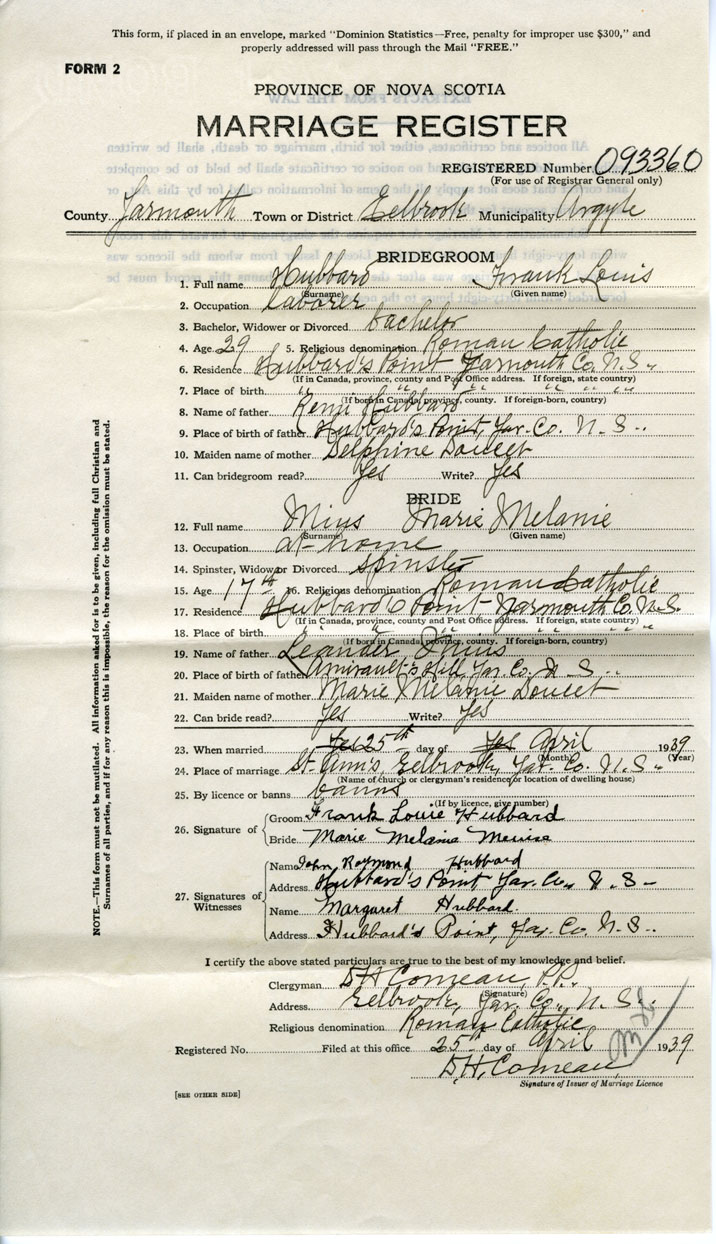 This form, if placed in an envelope, marked "Dominion Statistics—Free, penalty for improper use $300," and
properly addressed will pass through the Mail "FREE."
FORM 2
PROVINCE OF NOVA SCOTIA
MARRIAGE REGISTER
REGISTERED Number 093360
(For use of Registrar General only)
County Yarmouth Town or District Eelbrook Municipality Argyle
BRIDEGROOM
1. Full name Hubbard Frank Louis
(Surname) (Given name)
2. Occupation laborer
3. Bachelor, Widower or Divorced bachelor
4. Age 29 5. Religious denomination Roman Catholic
6. Residence Hubbard's Point Yarmouth Co. N. S.
(If in Canada, province, county and Post Office address. If foreign, state country)
7. Place of birth " " " " " "
(If born in Canada, province, county. If foreign-born, country)
8. Name of father Remi Hubbard
9. Place of birth of father Hubbard's Point, Yar. Co. N. S.
10. Maiden name of mother Delphine Doucet
11. Can bridegroom read? Yes Write? Yes
BRIDE
12. Full name Mius Marie Melanie
(Surname) (Given name)
13. Occupation at home
14. Spinster, Widow or Divorced spinster
15. Age 17th 16. Religious denomination Roman Catholic
17. Residence Hubbard's Point Yarmouth Co. N. S.
(If in Canada, province, county and Post Office address. If foreign, state country)
18. Place of birth " " " " " "
(If born in Canada, province, county. If foreign-born, country)
19. Name of father Leander Mius
20. Place of birth of father Amirault's Hill, Yar. Co. N. S.
21. Maiden name of mother Marie Melanie Doucet
22. Can bride read? Yes Write? Yes
23. When married Yes 25th day of Yes April 1939
(Month) (Year)
24. Place of marriage St. Ann's, Eelbrook, Yar. Co. N. S.
(Name of church or clergyman's residence, or location of dwelling house)
25. By licence or banns banns
(If by licence, give number)
26. Signature of Groom Frank Louie Hubbard
Bride Marie Melanie Meuise
27. Signatures of Witnesses
Name John Raymond Hubbard
Address Hubbard's Point Yar. Co. N. S.
Name Margaret Hubbard
Address Hubbard's Point, Yar. Co. N. S.
I certify the above stated particulars are true to the best of my knowledge and belief.
Clergyman D. H. Comeau, P.P.
(Signature)
Address Eelbrook, Yar. Co., N. S.
Religious denomination Roman Catholic
Registered No. Filed at this office 25 day of April 1939
D. H. Comeau
Signature of Issuer of Marriage Licence
[SEE OTHER SIDE]
NOTE.—This form must not be mutilated. All information asked for is to be given, including full Christian and
Surnames of all parties, and if for any reason this is impossible, the reason for the omission must be stated.